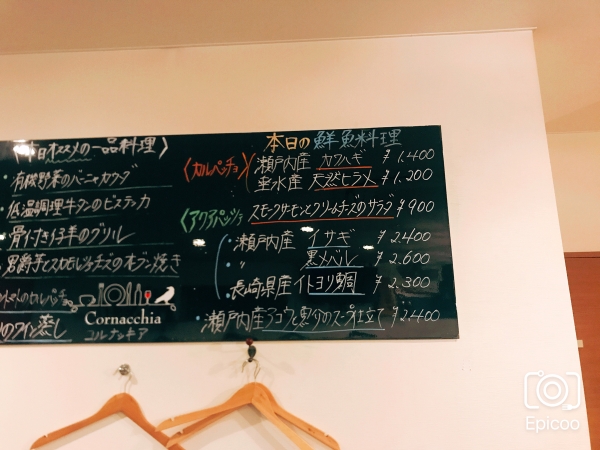 〈本日オススメの一品料理〉
・有機野菜のバーニャカウダ
・低温調理牛タンのビステッカ
・骨付き仔羊のグリル
・男爵芋とスカモルツァチーズのオーブン焼き
のカルパッチョ
のワイン蒸し
Cornacchia
コルナッキア
本日の鮮魚料理
〈カルパッチョ〉
瀬戸内産 カワハギ ¥1,400
垂水産 天然ヒラメ ¥1,200
スモークサーモンとクリームチーズのサラダ ¥900
〈アクアパッツァ〉
・瀬戸内産 イサギ ¥2,400
・ 〃 黒メバル ¥2,600
・長崎県産 イトヨリ鯛 ¥2,300
・瀬戸内産アコウと魚介のスープ仕立て ¥2,400
Epicoo